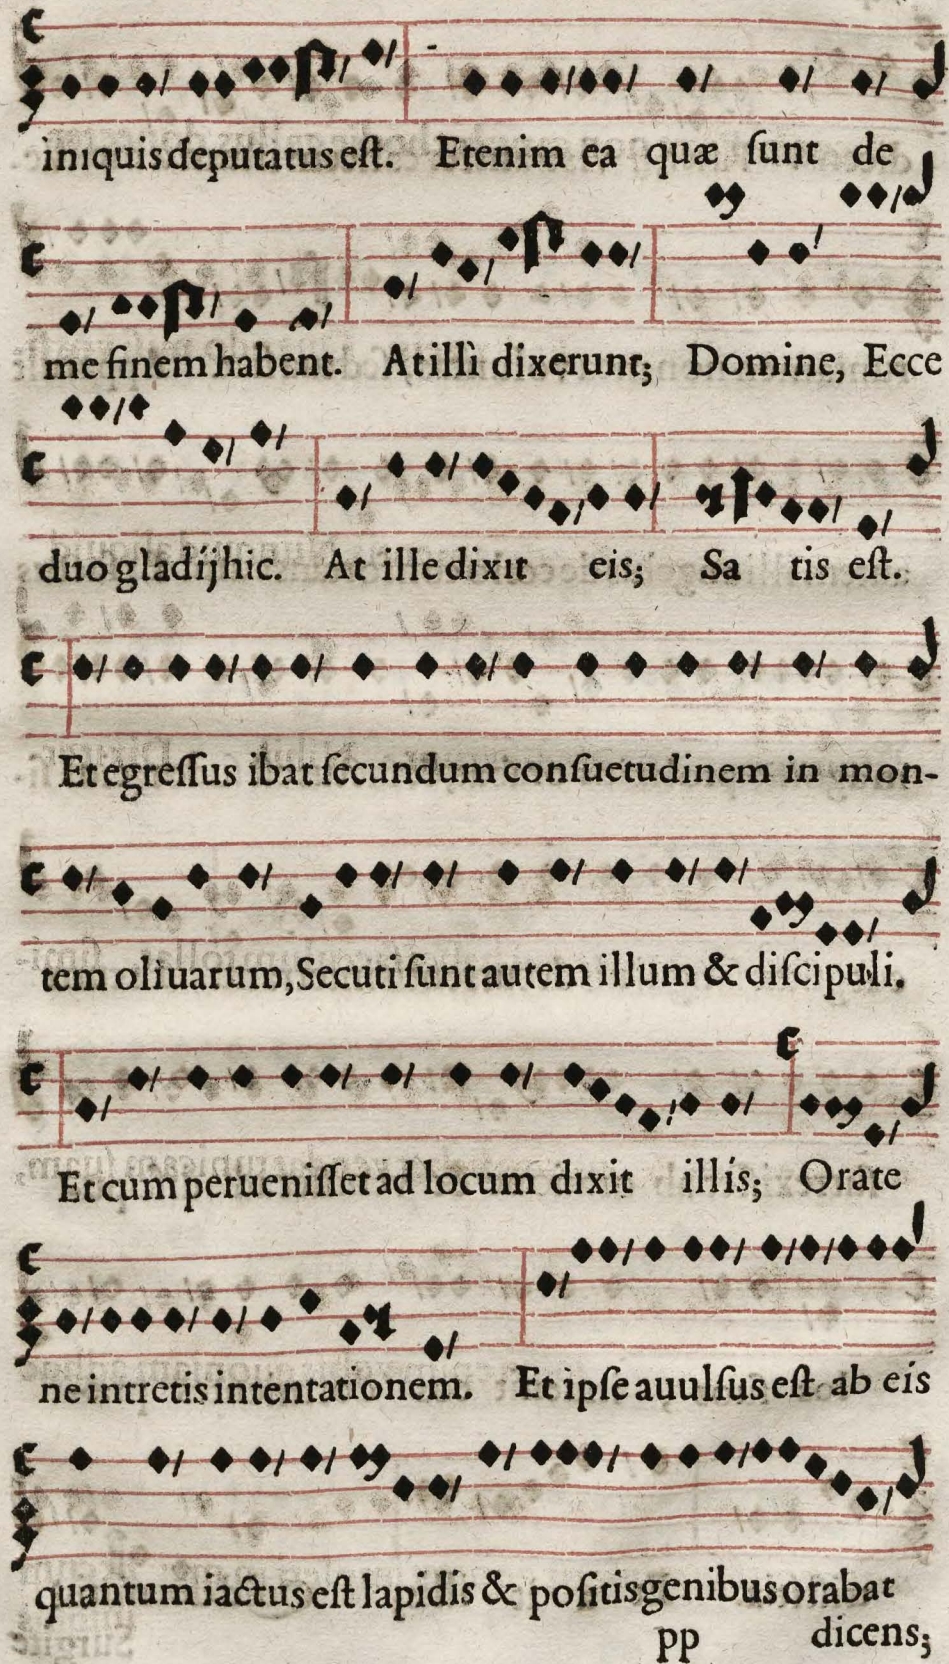 iniquis deputatus est. Etenim ea quæ ſunt de
me finem habent. At illi dixerunt; Domine, Ecce
duo gladij hic. At ille dixit eis; Sa tis eſt.
Et egreſſus ibat ſecundum conſuetudinem in mon-
tem oliuarum, Secuti ſunt autem illum & diſcipuli.
Et cum perueniſſet ad locum dixit illis; Orate
ne intretis in tentationem. Et ipſe auulſus eſt ab eis
quantum iactus eſt lapidis & poſitis genibus orabat
pp dicens;